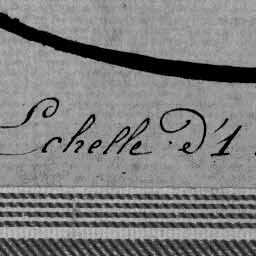 Echelle D'1